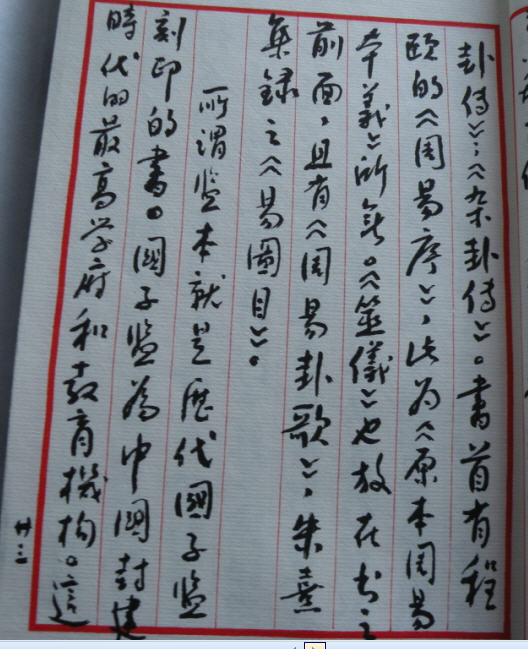 卦傳》;《杂卦傳》。書首有程
頤的《周易序》,此为《原本周易
本義》所無。《筮儀》也放在书之
前面,且有《周易卦歌》,朱熹
集録之《易圖目》。
所謂监本就是歷代國子监
刻印的書。國子监為中國封建
時代的最高学府和教育機构。這
廿三